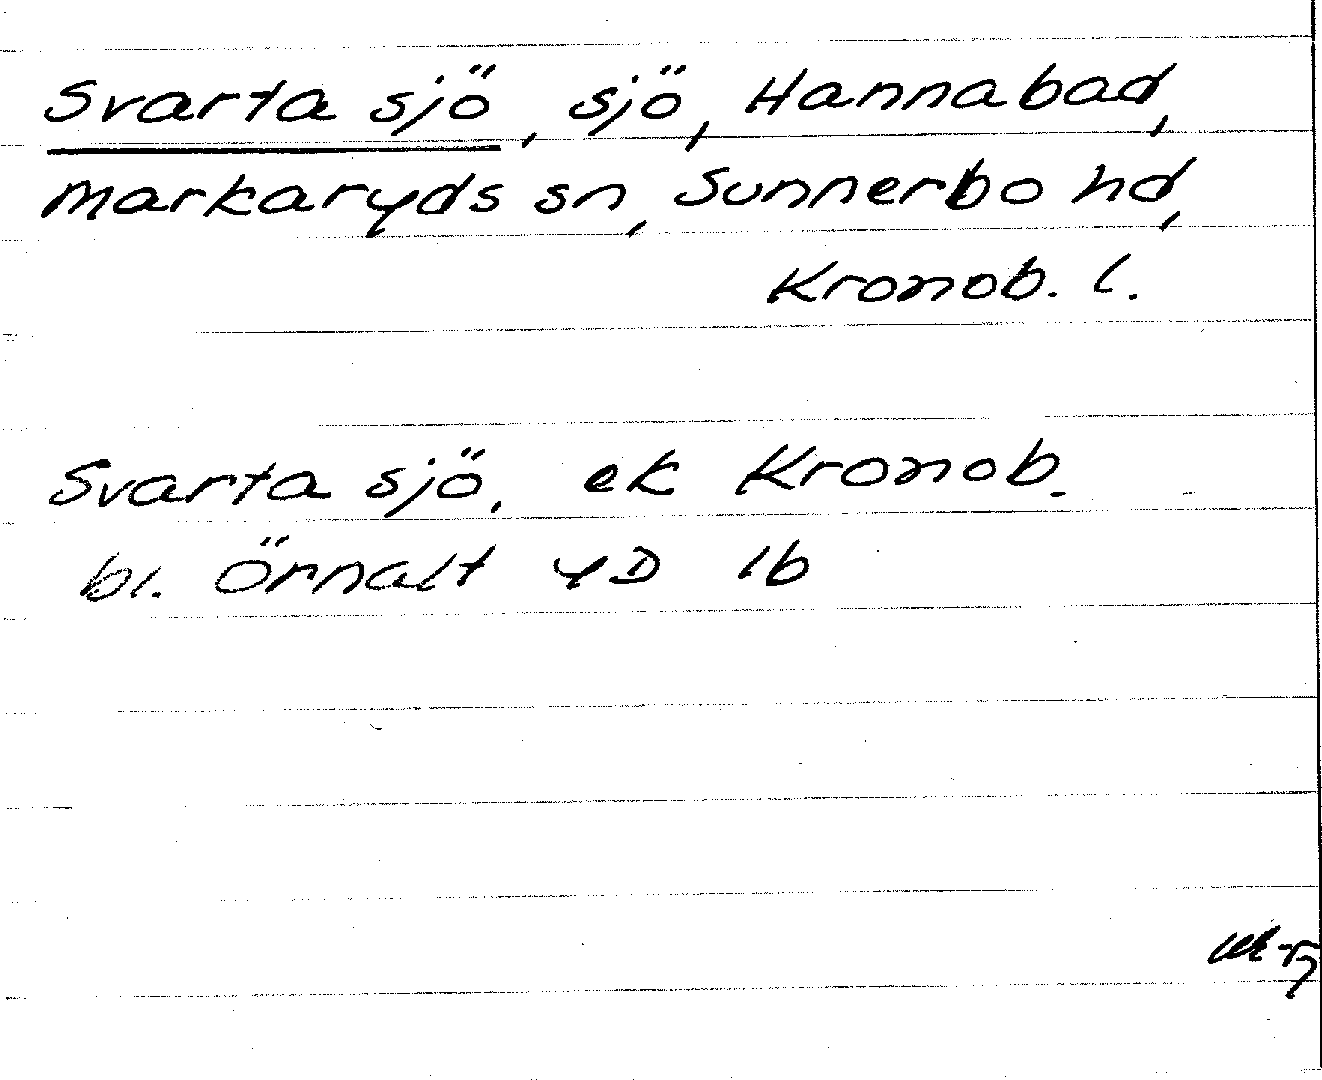 Svarta sjö, sjö, Hannabad,
Markaryds sn, Sunnerbo hd,
Kronob. l.
Svarta sjö, ek Kronob.
bl. Örnalt 4D 1b